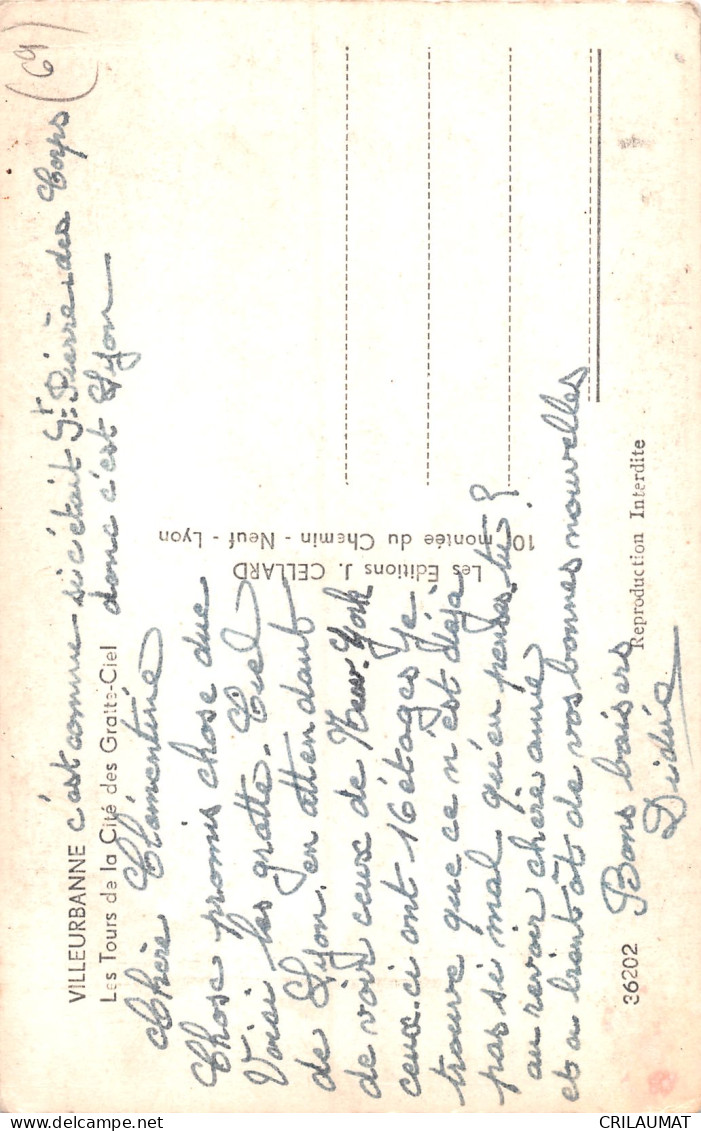 (69)
VILLEURBANNE c'est comme si c'était St Pierre-des Corps
Les Tours de la Cité des Gratte-Ciel donc c'est Lyon
Chère Clémentine
Chose promis chose due
Voisi les gratte-Ciel
de Lyon. en attendant
de voir ceux de New-York
ceux-ci ont 16 étages Je
trouve que ce n'est déjà
pas si mal qu'en penses tu?
au revoir chère amie
et a bientôt de vos bonnes nouvelles
Bons baisers
Les Editions J. CELLARD
10, montée du Chemin-Neuf - Lyon
36202
Reproduction Interdite
CRILAUMAT